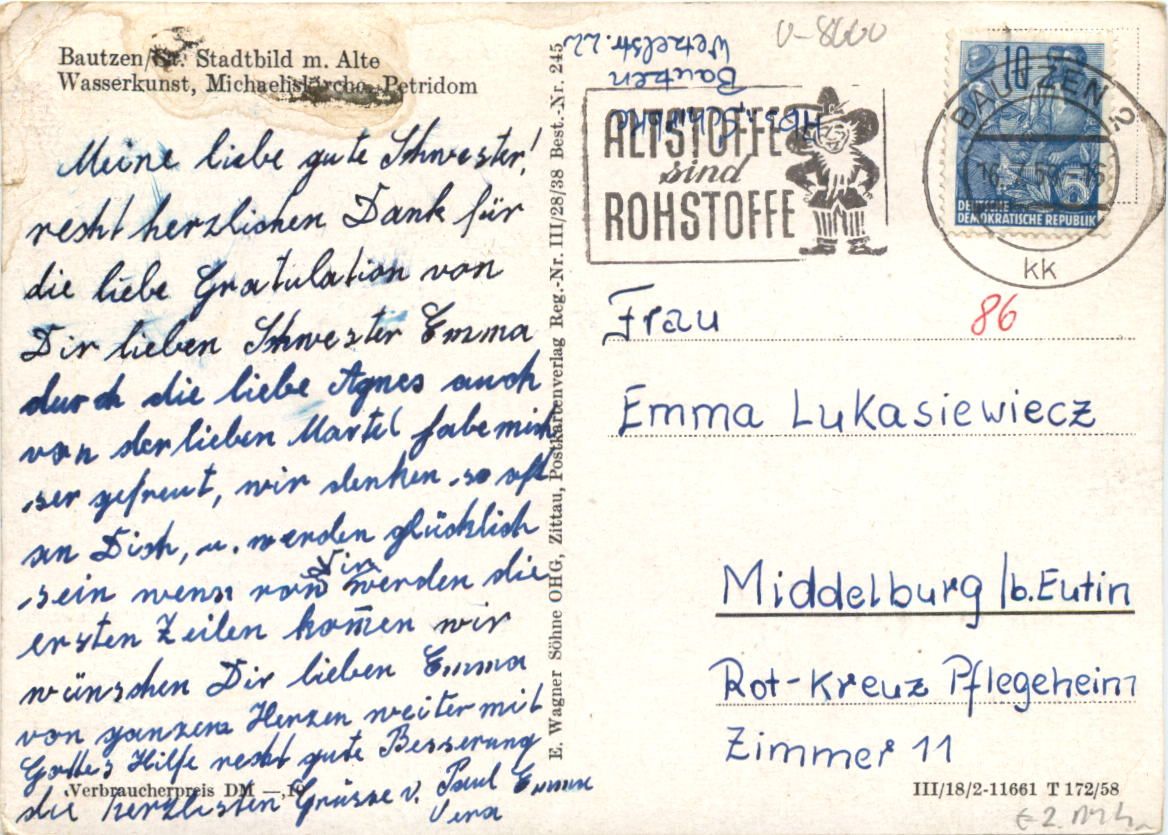 Bautzen/Sa. Stadtbild m. Alte
Wasserkunst, Michaeliskirche, Petridom
Meine liebe gute Schwester!
recht herzlichen Dank für
die liebe Gratulation von
Dir lieben Schwester Emma
durch die liebe Agnes auch
von der lieben Martel habe mich
ser gefreut, wir denken so oft
an Dich, u. werden glücklich
sein wenn von Dir werden die
ersten Zeilen kom̅en wir
wünschen Dir lieben Emma
von ganzem Herzen weiter mit
Gottes Hilfe recht gute Besserung
die herzlisten Grüsse v. Paul Emma
Vera
Verbraucherpreis DM —,19
E. Wagner Söhne OHG, Zittau, Postkartenverlag Reg.-Nr. III/28/38 Best.-Nr. 245
Abs. Schinke
Bautzen
Wetzelstr. 22
U-8600
ALTSTOFFE
sind
ROHSTOFFE
10
DEUTSCHE
DEMOKRATISCHE REPUBLIK
BAUTZEN 2
kk
86
Frau
Emma Lukasiewiecz
Middelburg /b. Eutin
Rot-Kreuz Pflegeheim
Zimmer 11
III/18/2-11661 T 172/58